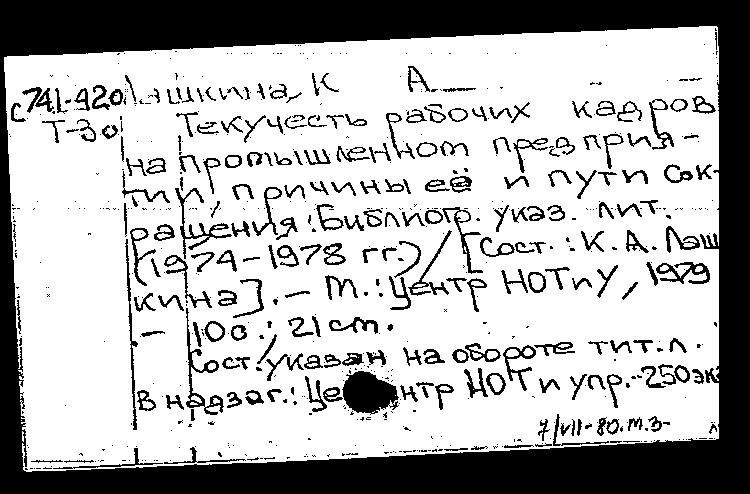 с741-420 Лашкина, К А
Т-30 Текучесть рабочих кадров
на промышленном предприя-
тии, причины её и пути сок-
ращения: Библиогр. указ. лит.
(1974-1978 гг.) / [Сост.: К. А. Лаш
кина]. - М.: Центр НОТиУ, 1979
.- 10 с.; 21 cm.
Сост. указан на обороте тит. л.
В надзаг.: Це нтр НОТ и упр.-250экз
7/VII-80. М.З-